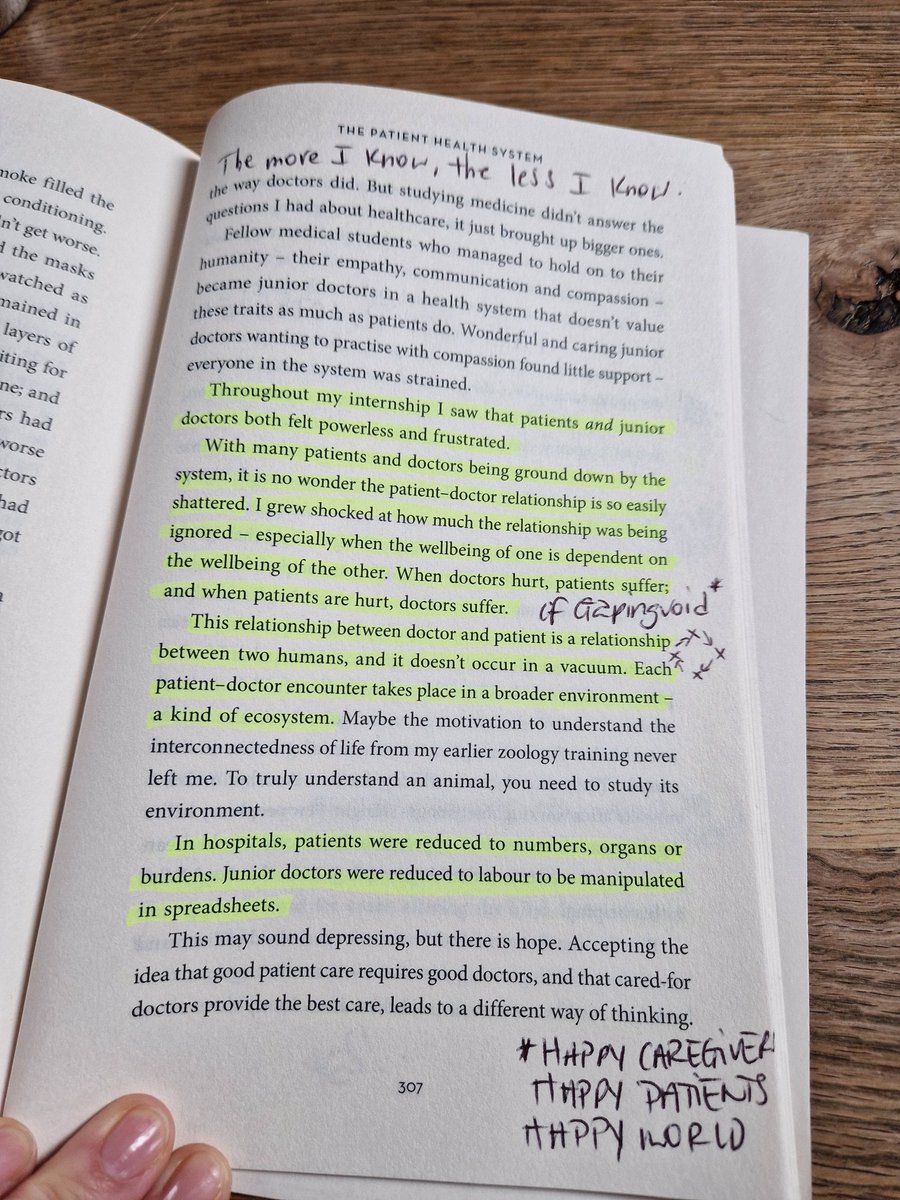 moke filled the
conditioning.
n't get worse.
d the masks
watched as
mained in
layers of
iting for
ne; and
rs had
worse
ctors
had
got
THE PATIENT HEALTH SYSTEM
The more I know, the less I know.
the way doctors did. But studying medicine didn't answer the
questions I had about healthcare, it just brought up bigger ones.
Fellow medical students who managed to hold on to their
humanity – their empathy, communication and compassion –
became junior doctors in a health system that doesn't value
these traits as much as patients do. Wonderful and caring junior
doctors wanting to practise with compassion found little support –
everyone in the system was strained.
Throughout my internship I saw that patients and junior
doctors both felt powerless and frustrated.
With many patients and doctors being ground down by the
system, it is no wonder the patient–doctor relationship is so easily
shattered. I grew shocked at how much the relationship was being
ignored – especially when the wellbeing of one is dependent on
the wellbeing of the other. When doctors hurt, patients suffer;
and when patients are hurt, doctors suffer. cf Gapingvoid *
This relationship between doctor and patient is a relationship
between two humans, and it doesn't occur in a vacuum. Each
patient–doctor encounter takes place in a broader environment –
a kind of ecosystem. Maybe the motivation to understand the
interconnectedness of life from my earlier zoology training never
left me. To truly understand an animal, you need to study its
environment.
In hospitals, patients were reduced to numbers, organs or
burdens. Junior doctors were reduced to labour to be manipulated
in spreadsheets.
This may sound depressing, but there is hope. Accepting the
idea that good patient care requires good doctors, and that cared-for
doctors provide the best care, leads to a different way of thinking.
* HAPPY CAREGIVER
HAPPY PATIENTS
HAPPY WORLD
307